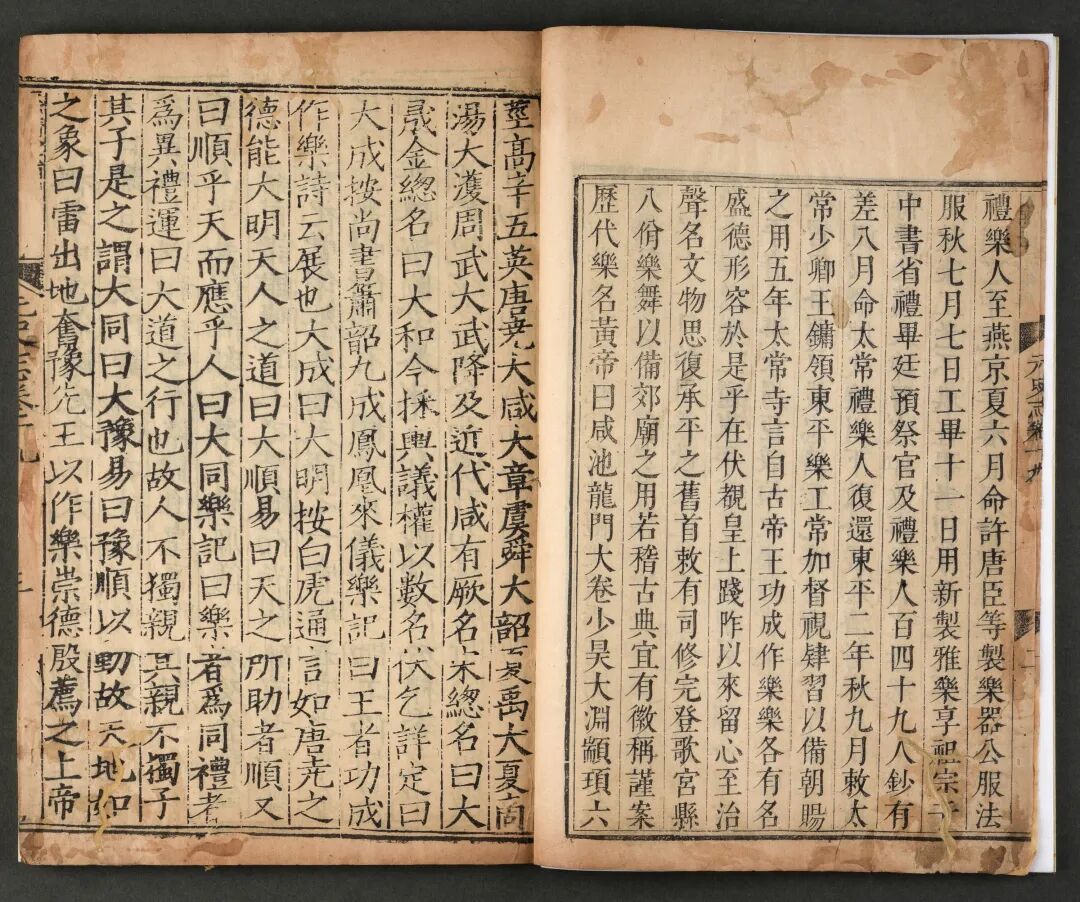 禮樂人至燕京夏六月命許唐臣等製樂器公服法
服秋七月七日工畢十一日用新製雅樂享祖宗于
中書省禮畢廷預祭官及禮樂人百四十九人鈔有
差八月命太常禮樂人復還東平二年秋九月敕太
常少卿王鏞領東平樂工常加督視肄習以備朝賜
之用五年太常寺言自古帝王功成作樂樂各有名
盛德形容於是乎在伏覩皇上踐阼以來留心至治
聲名文物思復承平之舊首敕有司修完登歌宮縣
八佾樂舞以備郊廟之用若稽古典宜有徽稱謹案
歷代樂名黃帝曰咸池龍門大卷少昊大淵顓頊六
元史志卷十九
二
莖高辛五英唐堯大咸大章虞舜大韶夏禹大夏商
湯大濩周武大武降及近代咸有厥名宋總名曰大
晟金總名曰大和今採輿議權以數名伏乞詳定曰
大成按尚書簫韶九成鳳凰來儀樂記曰王者功成
作樂詩云展也大成曰大明按白虎通言如唐堯之
德能大明天人之道曰大順易曰天之所助者順又
曰順乎天而應乎人曰大同樂記曰樂者為同禮者
為異禮運曰大道之行也故人不獨親其親不獨子
其子是之謂大同曰大豫易曰豫順以動故天地如
之象曰雷出地奮豫先王以作樂崇德殷薦之上帝